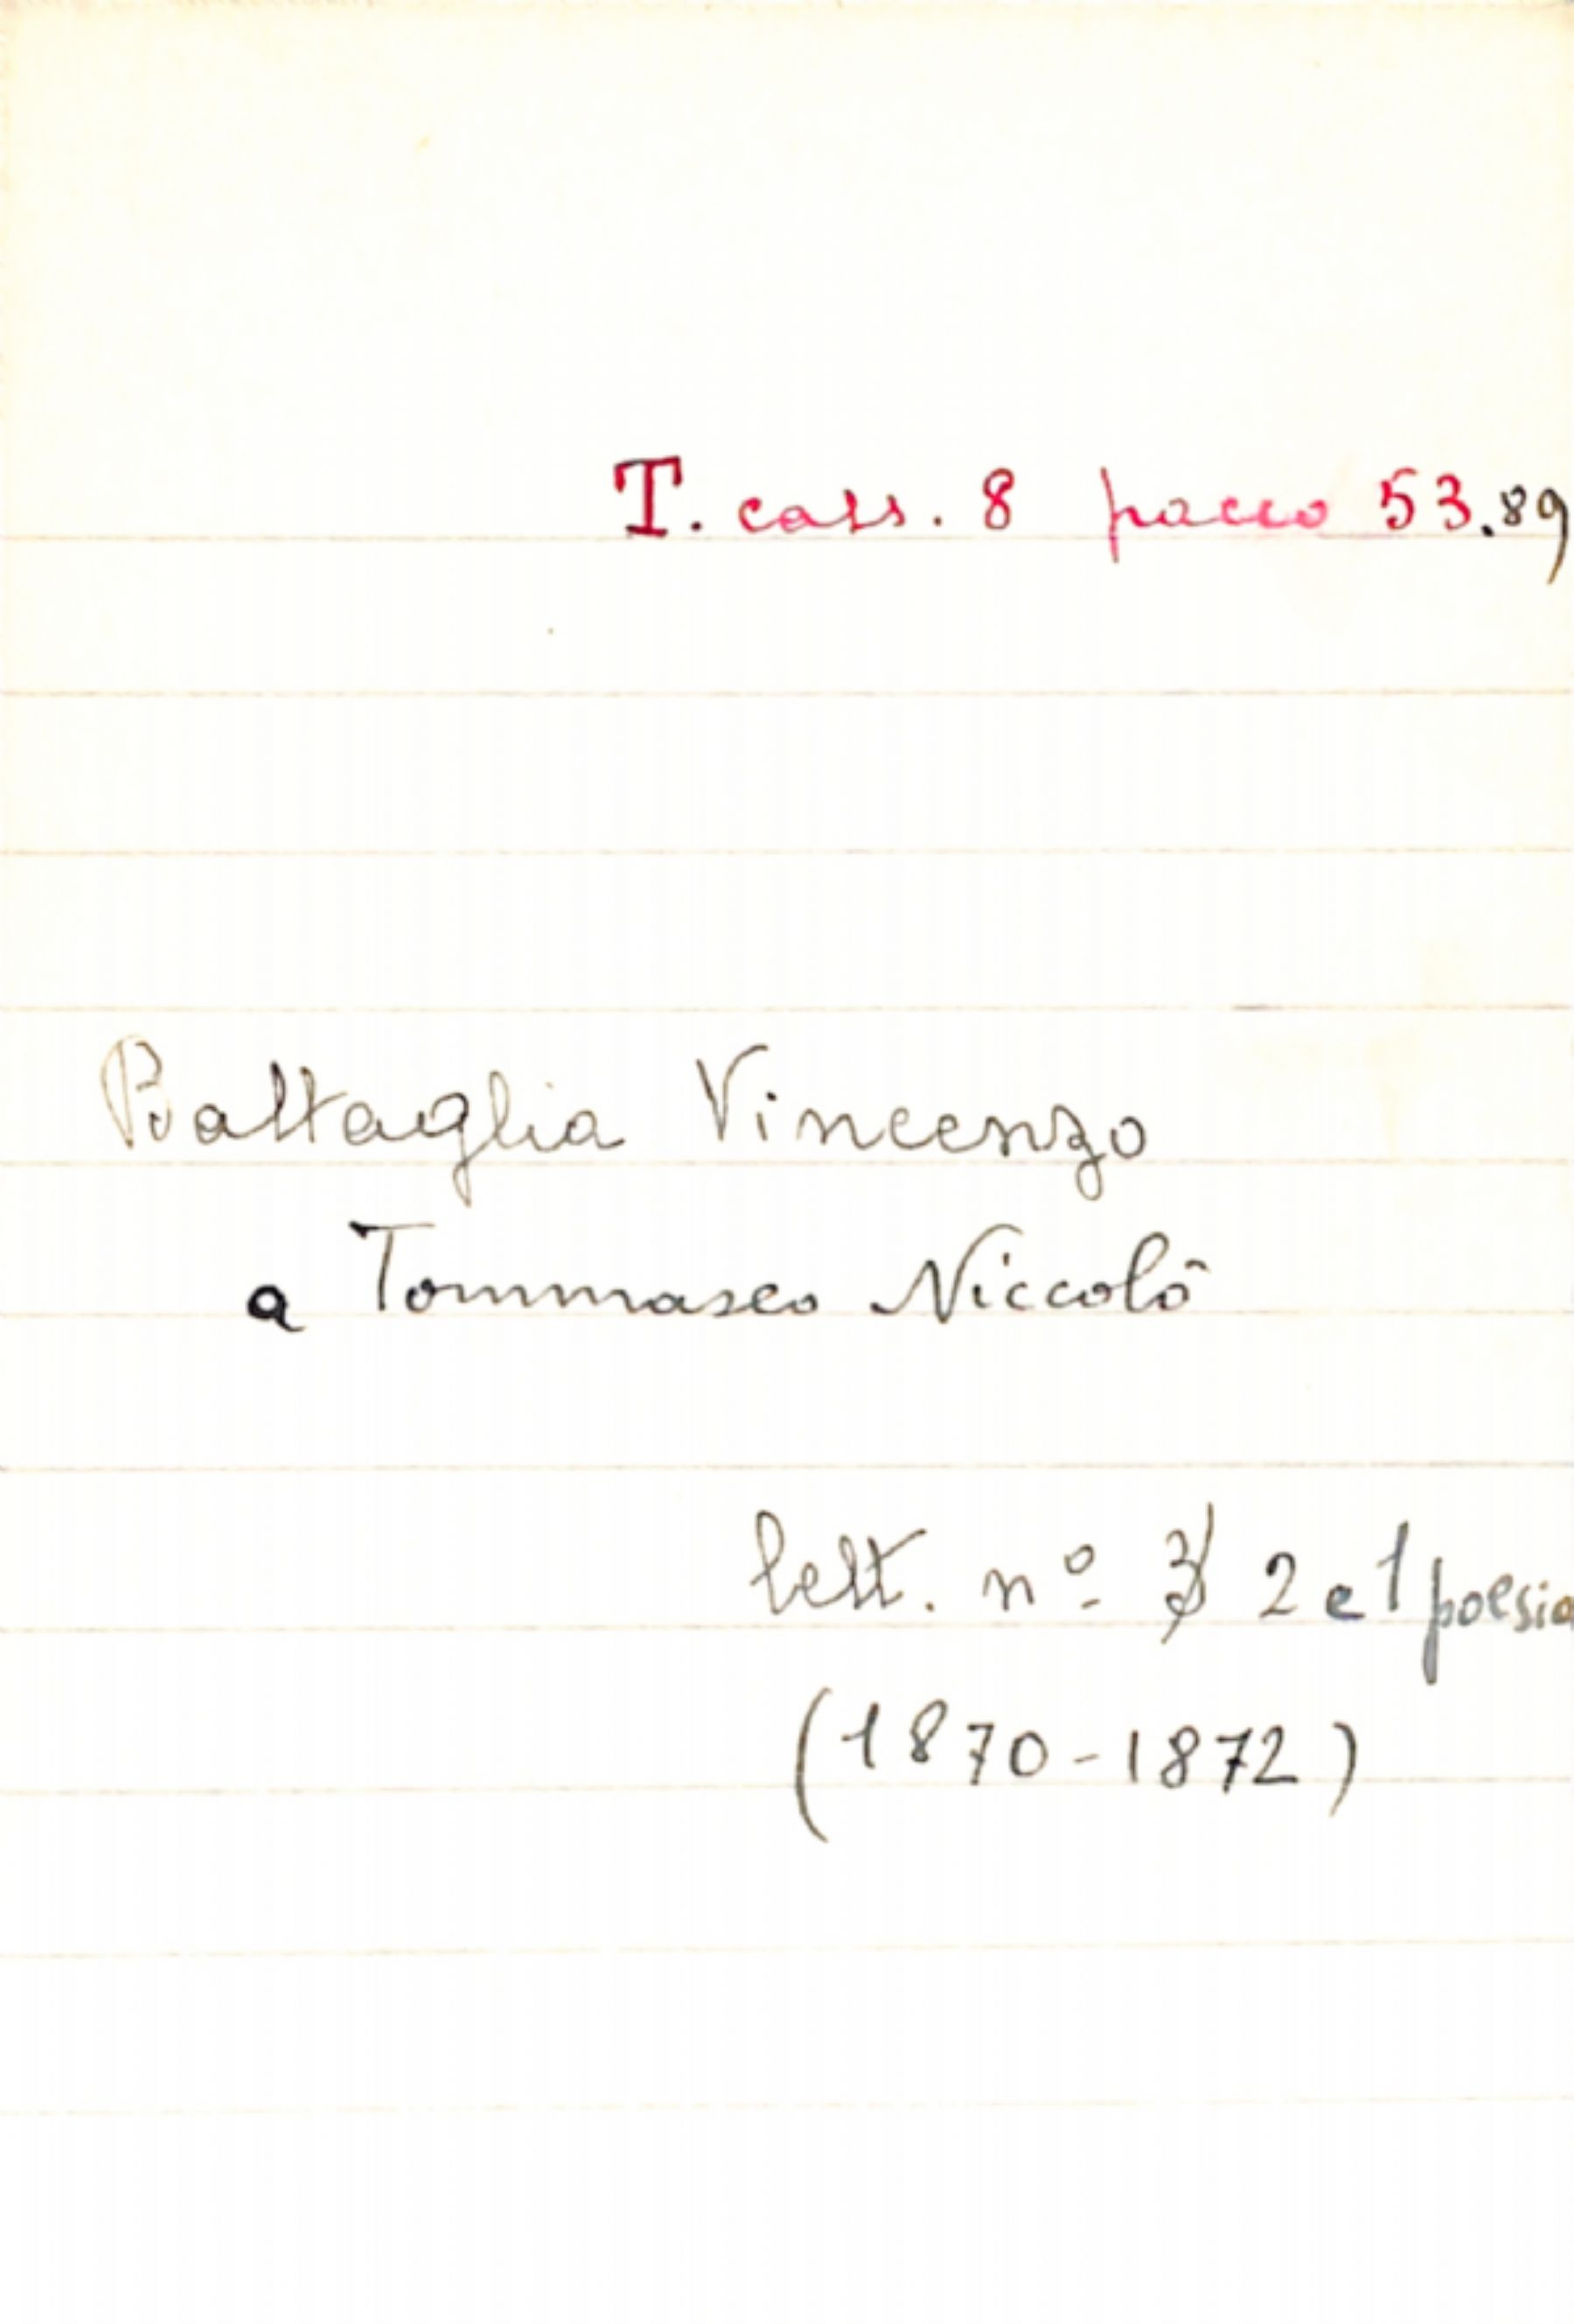 T. cass. 8 pacco 53.89
Battaglia Vincenzo
a Tommaseo Niccolò
lett. nº 3 2 e 1 poesia
(1870-1872)